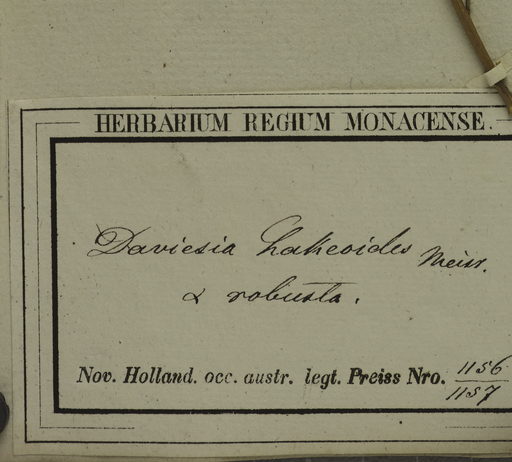 HERBARIUM REGIUM MONACENSE.
Daviesia hakeoides Meisr.
α robusta.
Nov. Holland. occ. austr. legt. Preiss Nro. 1156
1157